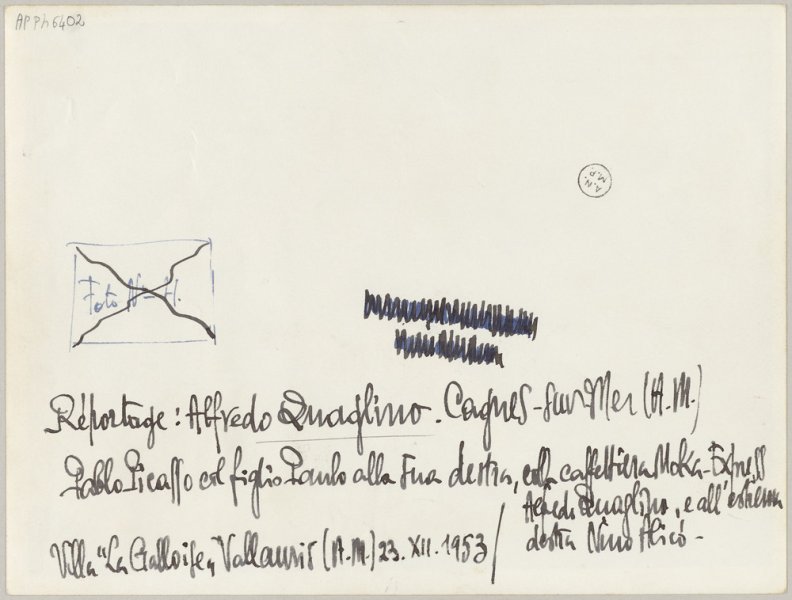 APPh6402
A.N.
M.P.
Foto N-H.
Réportage: Alfredo Quaglino. Cagnes-sur-Mer (A.M.)
Pablo Picasso col figlio Paulo alla sua destra, colla caffettiera Moka-Express
Alfredo Quaglino, e all'estrema
destra Nino Alicó-
Villa "La Galloise" Vallauris (A.M.) 23. XII. 1953 /